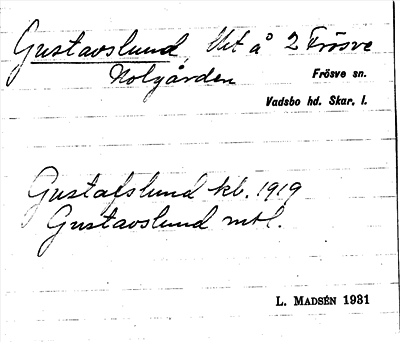 Gustavslund, Utt å 2 Frösve
Nolgården
Frösve sn.
Vadsbo hd. Skar. l.
Gustafslund kb. 1919
Gustavslund mtl.
L. MADSÉN 1931